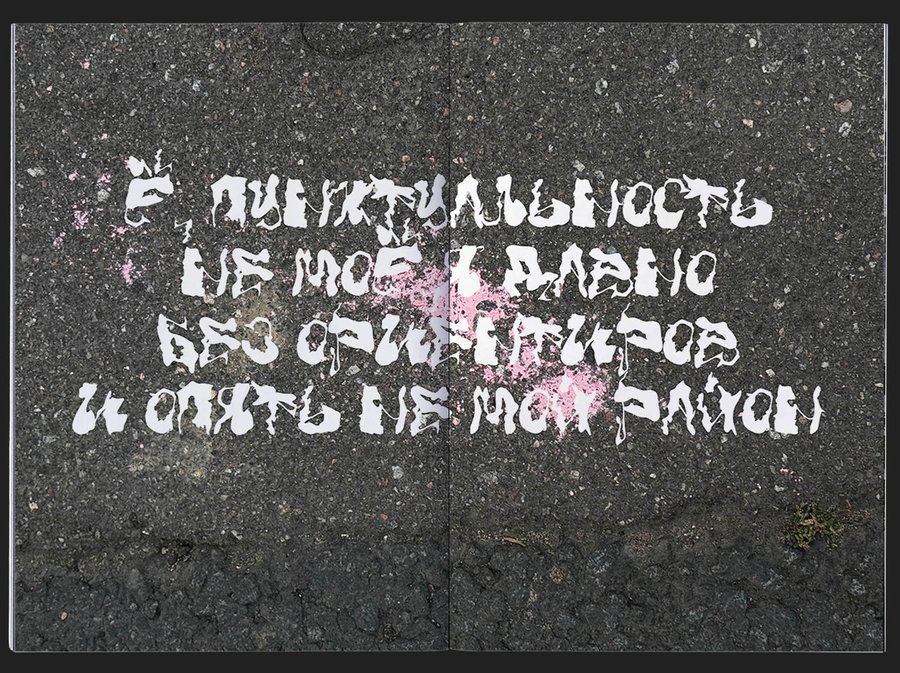 Ё, ПУНКТУАЛЬНОСТЬ
НЕ МОЁ Я ДАВНО
БЕЗ ОРИЕНТИРОВ
И ОПЯТЬ НЕ МОЙ РАЙОН